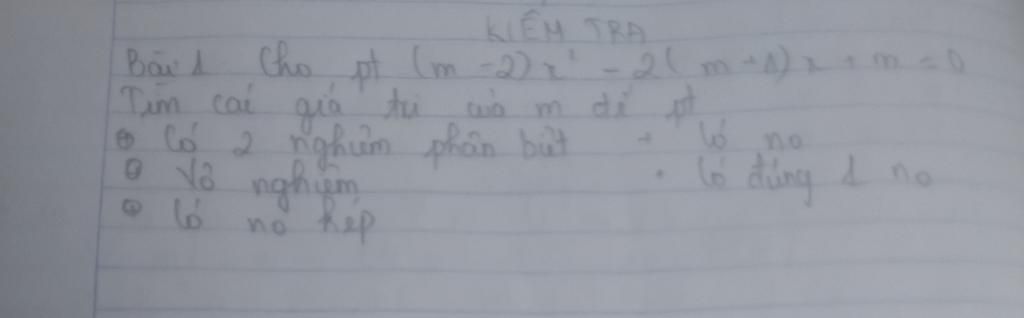 KIỂM TRA
Bài 1 Cho pt (m - 2)x² - 2(m + 1)x + m = 0
Tìm các giá trị của m để pt
+ Có 2 nghiệm phân biệt + Có no
+ Vô nghiệm • Có đúng 1 no
+ Có no kép